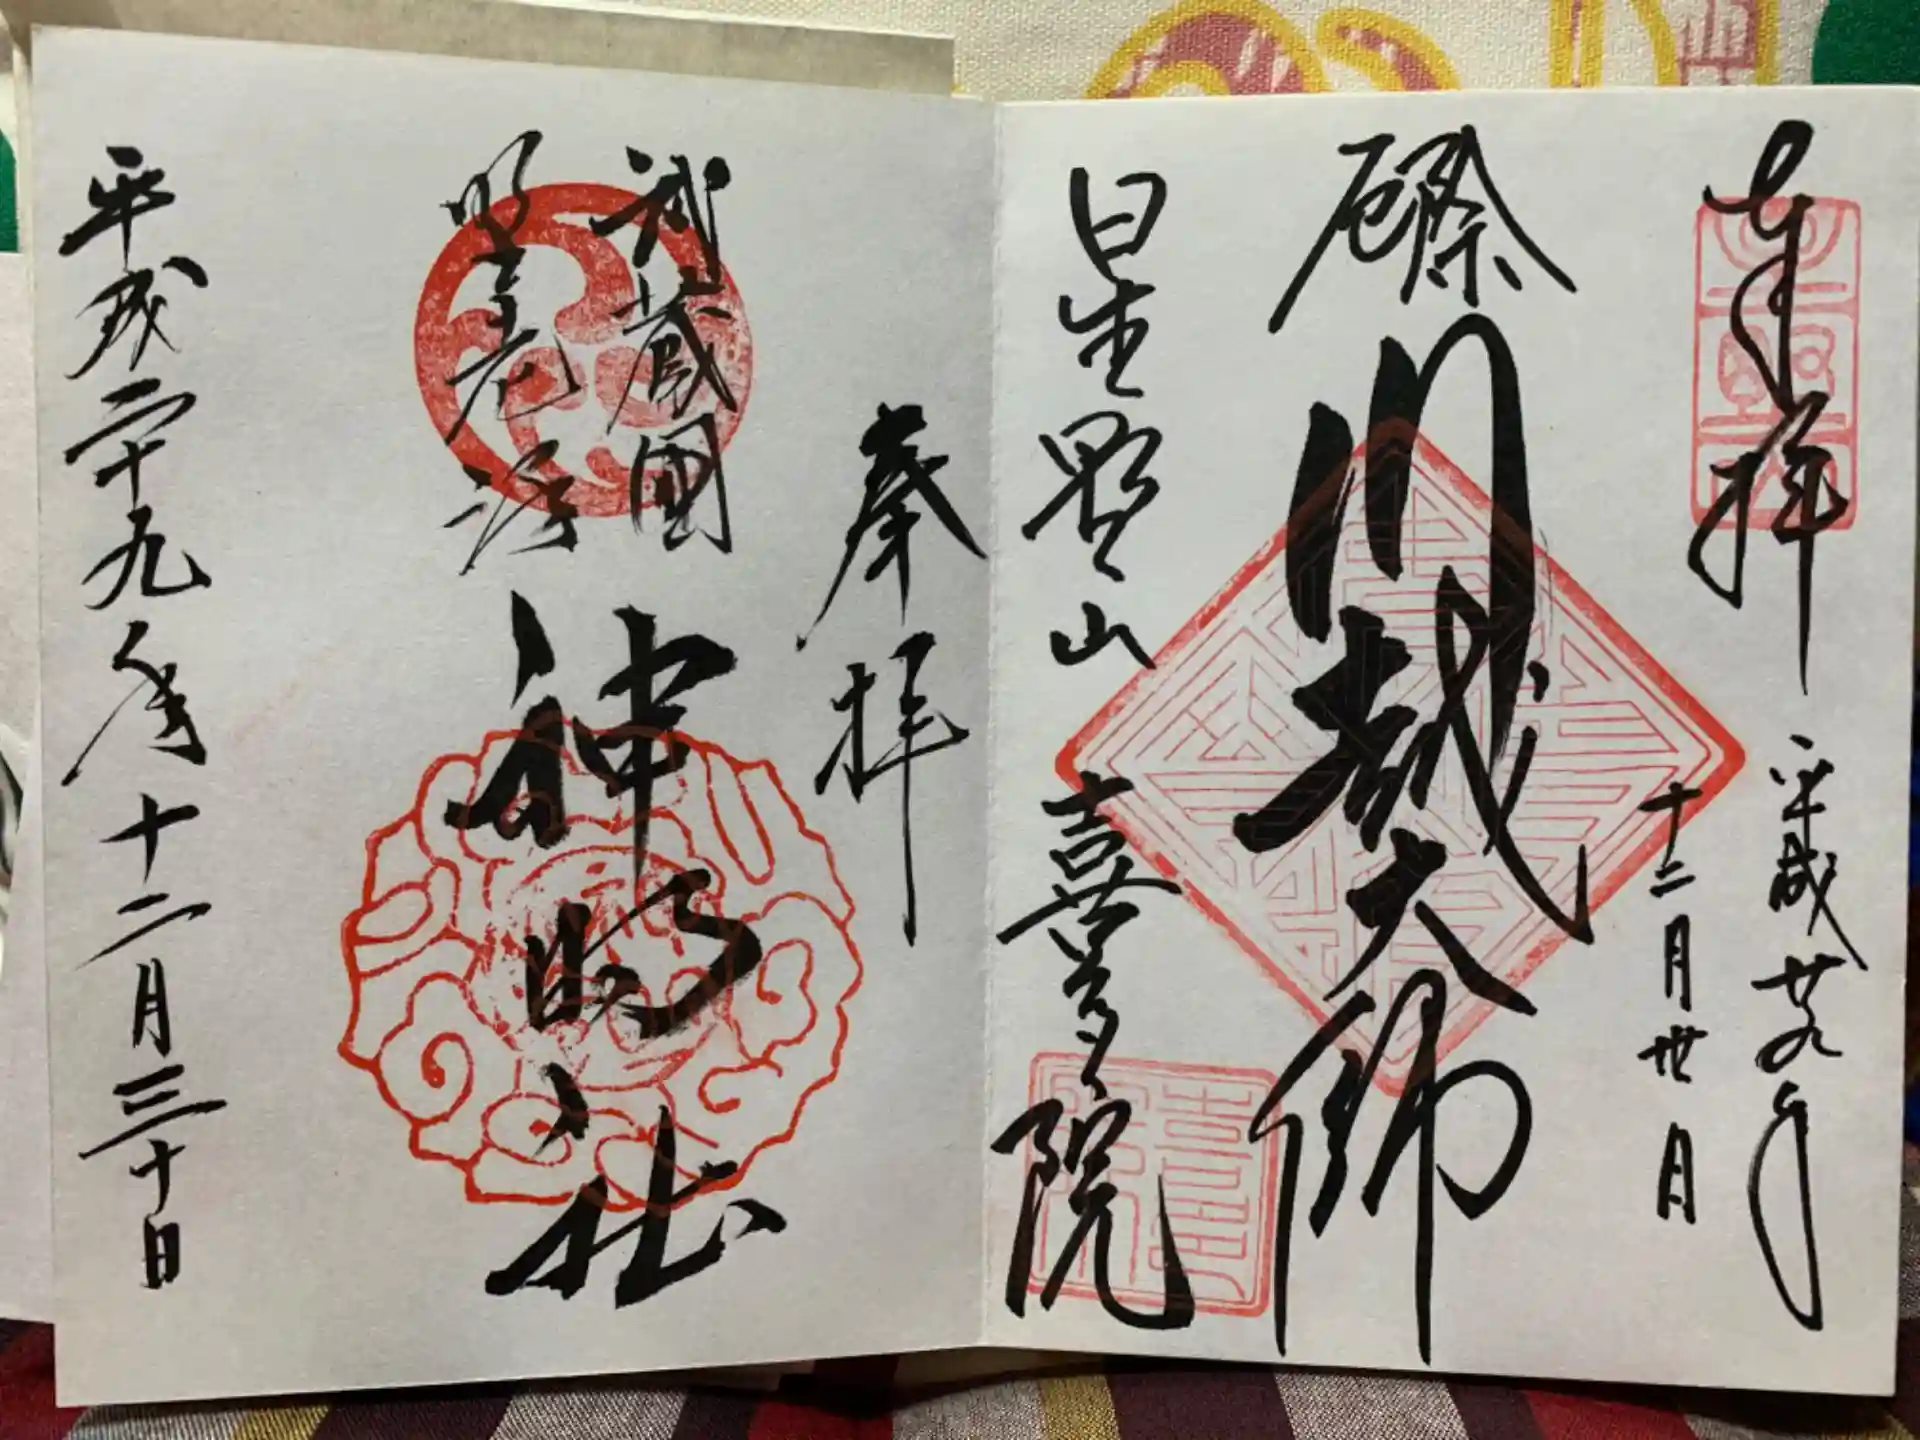 奉拝
平成廿九年
十二月丗日
厄除
川越大師
星野山
喜多院
奉拝
武蔵國
野老澤
神明社
平成二十九年十二月三十日